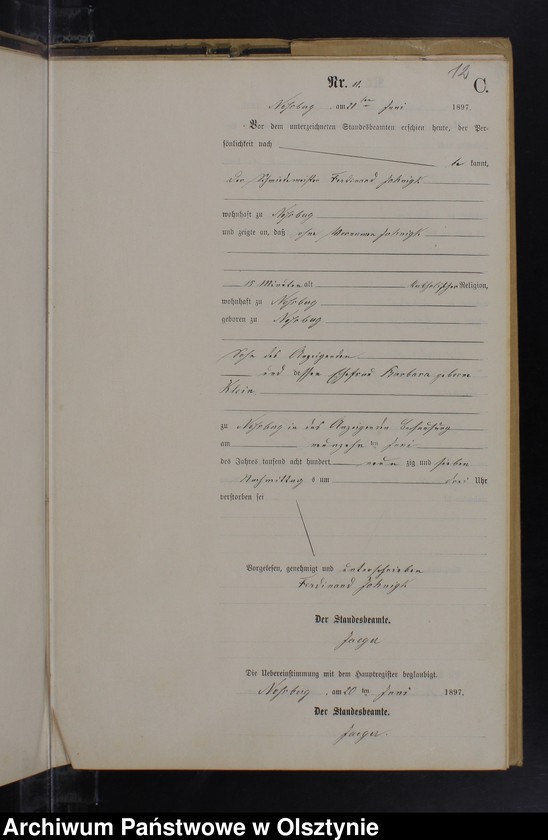 12
Nr. 11.
C.
am 20ten Juni 1897.
Vor dem unterzeichneten Standesbeamten erschien heute, der Per-
sönlichkeit nach
be kannt,
der Schmiedemeister Ferdinand
wohnhaft zu
und zeigte an, daß
18 Minuten alt katholischer Religion,
wohnhaft zu
geboren zu
Sohn des Anzeigenden
und dessen Ehefrau Barbara geborene
Klein
zu in des Anzeigenden Behausung
am neunzehnten Juni
des Jahres tausend acht hundert neun zig und sieben
Nachmittag s um drei Uhr
verstorben sei
Vorgelesen, genehmigt und unterschrieben
Ferdinand
Der Standesbeamte.
Jaeger
Die Uebereinstimmung mit dem Hauptregister beglaubigt.
am 20ten Juni 1897.
Der Standesbeamte.
Jaeger
Archiwum Państwowe w Olsztynie